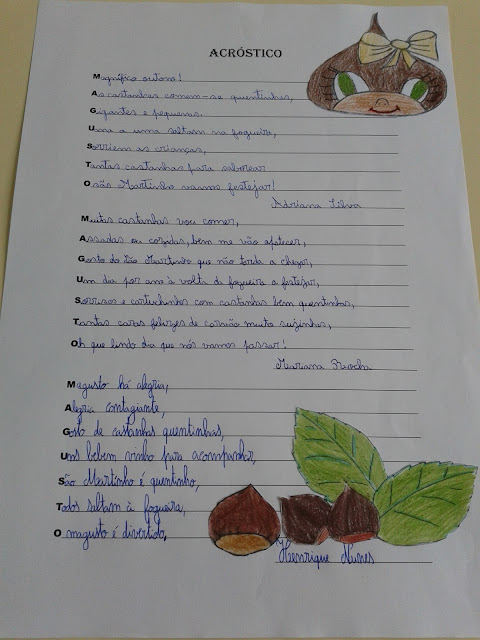 ACRÓSTICO
Magnífico outono!
As castanhas comem-se quentinhas,
Gigantes e pequenas.
Uma a uma saltam na fogueira,
Sorriem as crianças,
Tantas castanhas para saborear
O são Martinho vamos festejar!
Adriana Silva
Muitas castanhas vou comer,
Assadas ou cozidas, bem me vão apetecer,
Gosto do São Martinho que não tarda a chegar,
Um dia por ano à volta da fogueira a festejar,
Sorrisos e cartuchinhos com castanhas bem quentinhas,
Tantas caras felizes de carvão muito sujinhas,
Oh que lindo dia que nós vamos passar!
Mariana Rocha
Magusto há alegria,
Alegria contagiante,
Gosto de castanhas quentinhas,
Uns bebem vinho para acompanhar,
São Martinho é quentinho,
Todos saltam à fogueira,
O magusto é divertido.
Henrique Nunes